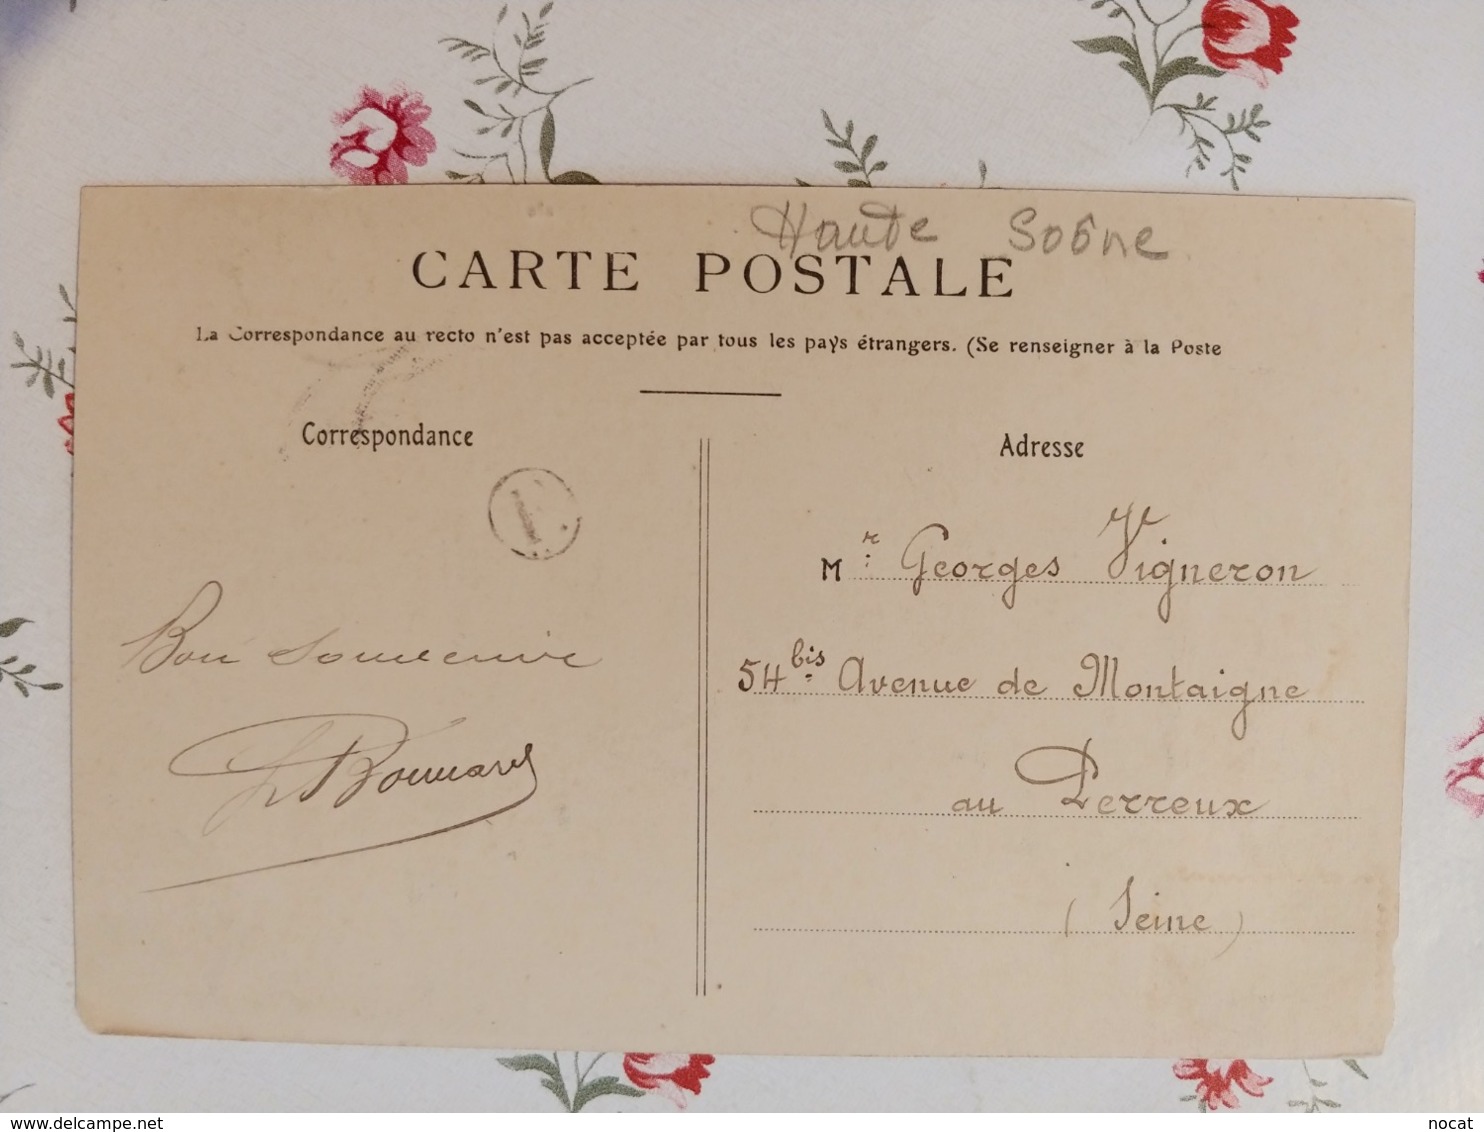 Haute Saône
CARTE POSTALE
La Correspondance au recto n'est pas acceptée par tous les pays étrangers. (Se renseigner à la Poste
Correspondance
Bon souvenir
Adresse
Mr Georges Vigneron
54 bis Avenue de Montaigne
au Perreux
(Seine)
www.delcampe.net
nocat